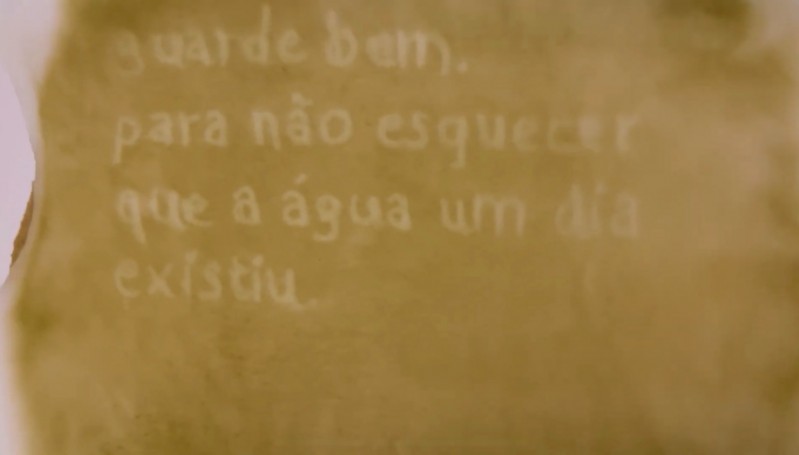 guarde bem.
para não esquecer
que a água um dia
existiu.